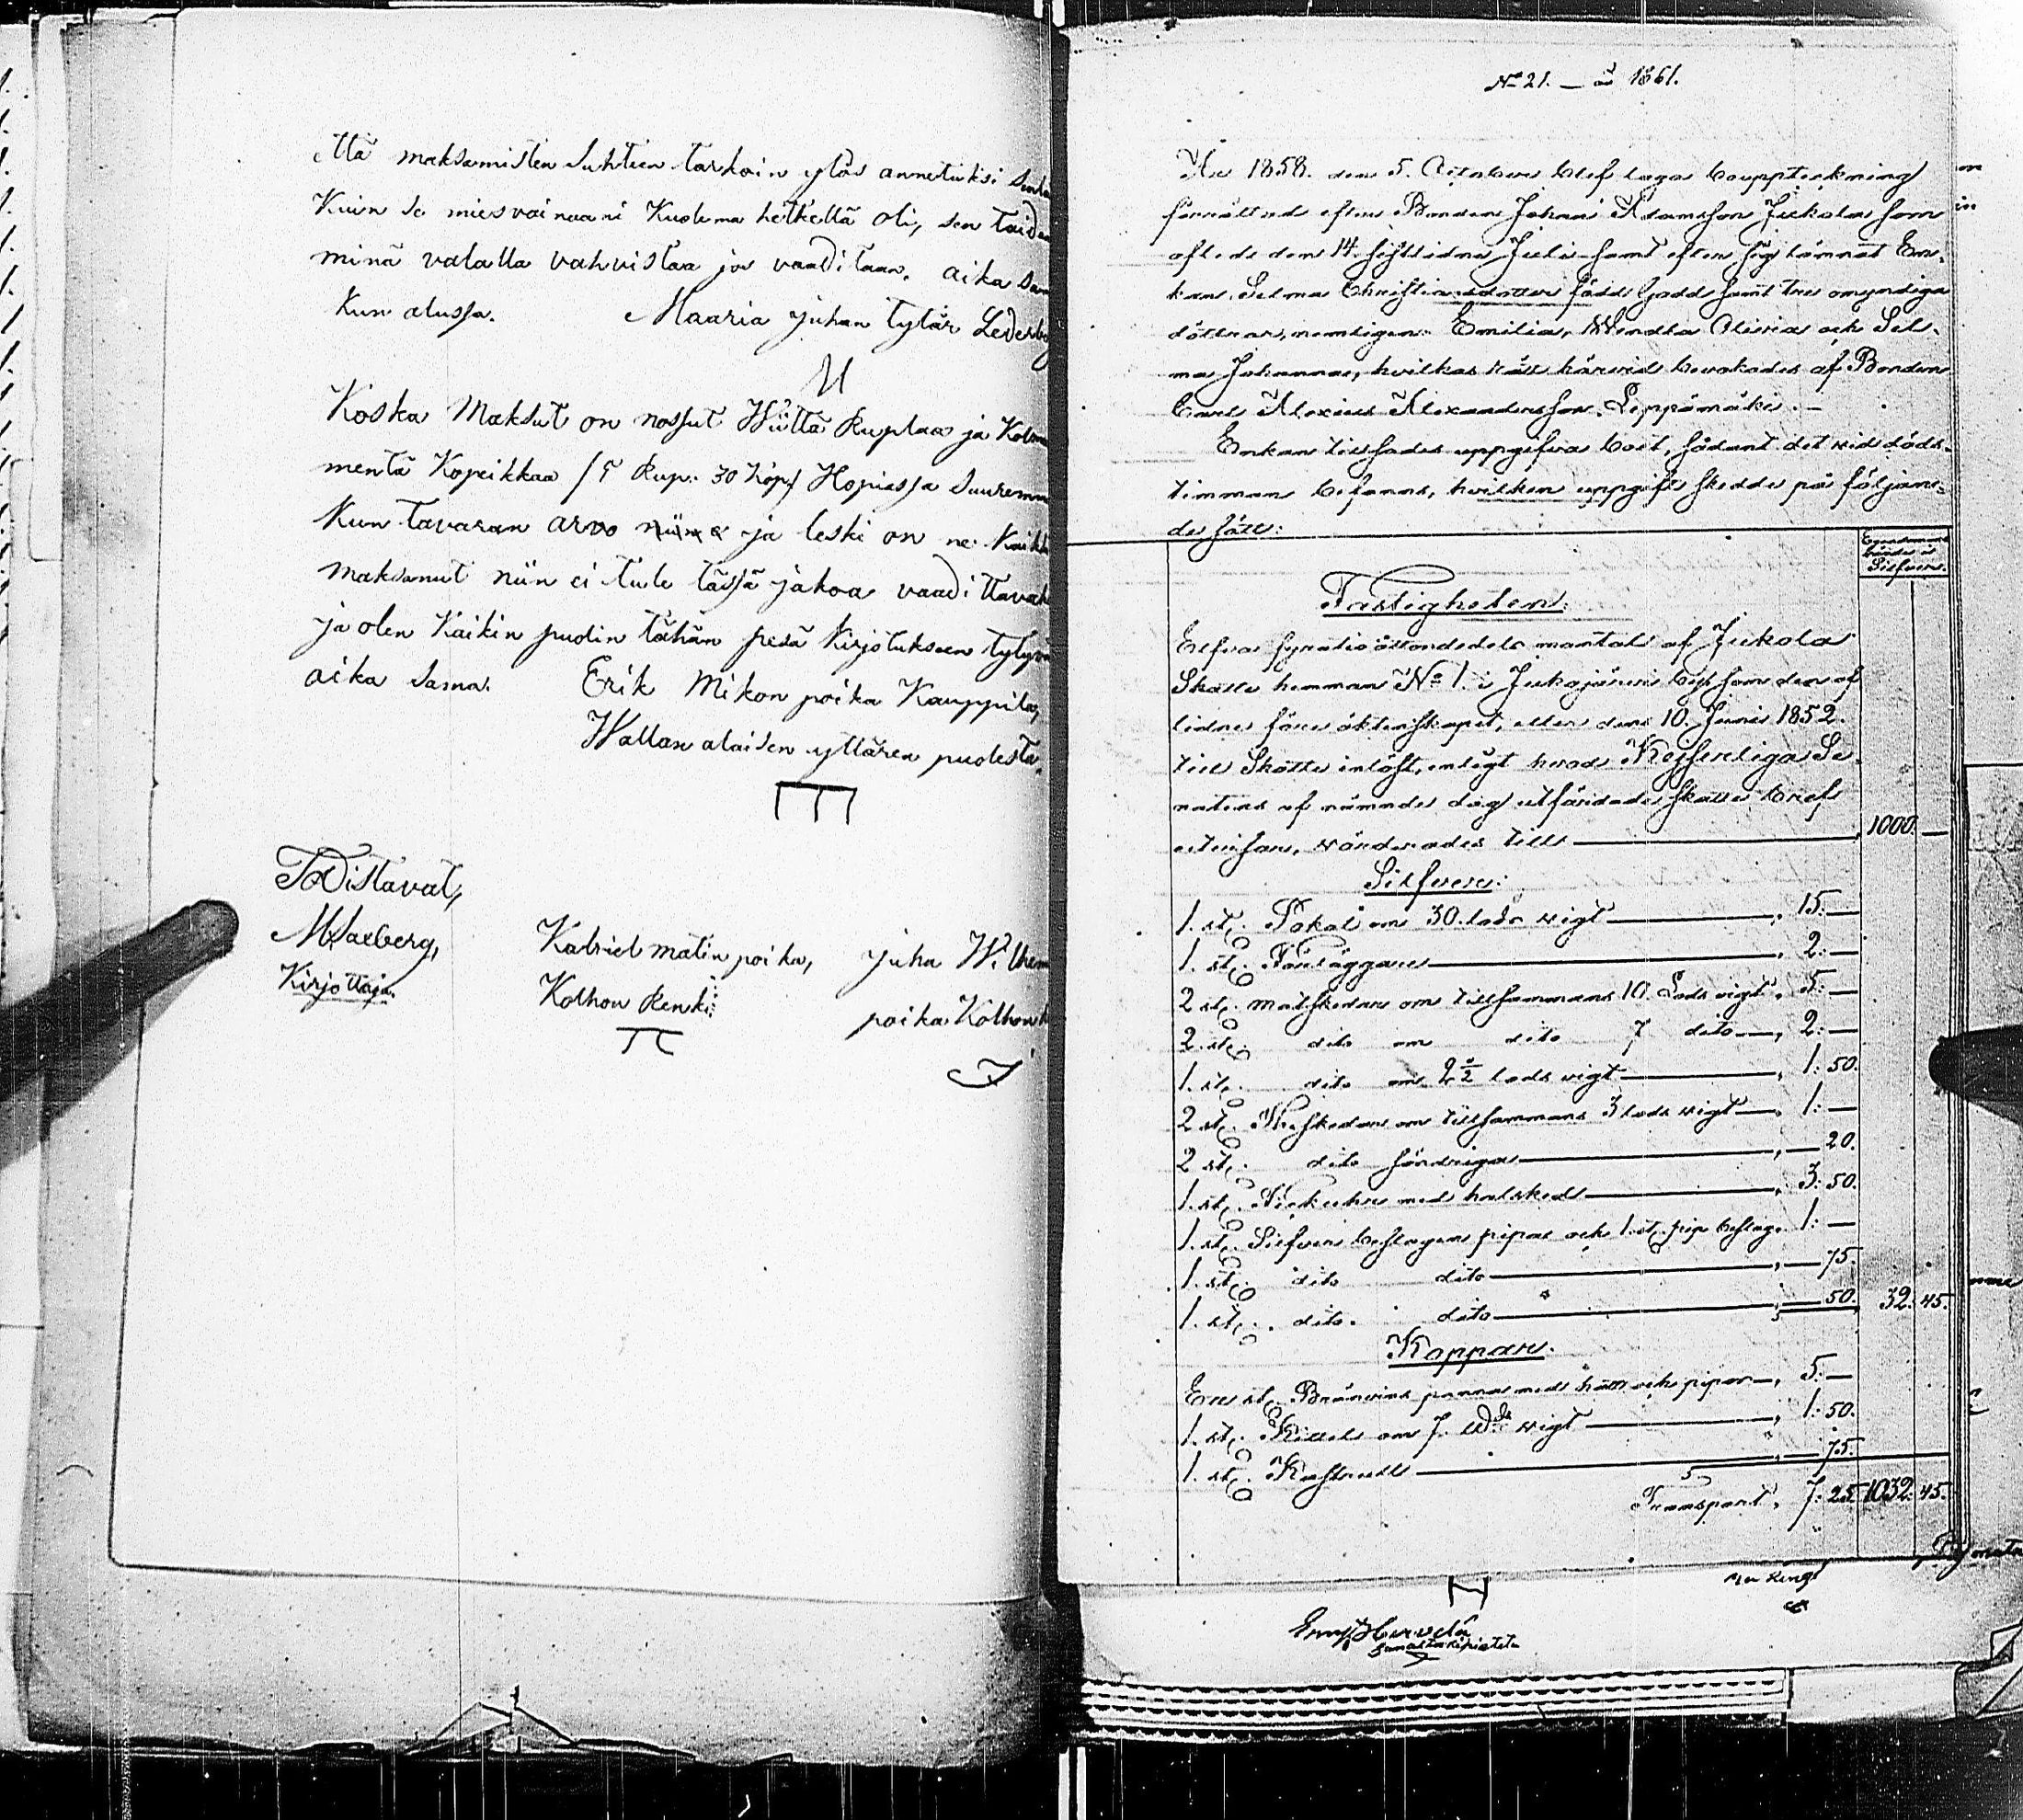 ttä maksamisten suhteen tarkoin ylös annetuksi
Kuin se miesvainaani Kuolema hetkellä oli, sen taidan
minä valalla vahvistaa jos vaaditaan. aika
Kun alussa. Maaria Juhan tytär
Koska Maksut on nossut Wiittä Ruplaa ja
mentä Kopeikkaa /5 Rup: 30 kop/ Hopiassa
Kun tavaran arvo ja leski on ne
maksanut niin ei tule tässä jakoa
ja olen Kaikin puolin tähän pesä Kirjotukseen
aika sama. Erik Mikon poika Kauppila,
Wallan alaisen yttären puolesta.
Todistavat,
M. Saxberg,
Kirjottaja.
Kabriel matin poika,
Kolhon Renki:
Juha
poika Kolhon
No 21. — å 1861.
År 1858. den 5. October blef laga bouppteckning
förrättad efter Bonden Johan Adamsson Jukola som
afled den 14 sistledne Juli samt efter sig lämnat En-
kan Selma Christinasdotter född Gadd samt tre omyndiga
döttrar, nemligen: Emilia, Wendla Olivia och Sel-
ma Johanna, hvilkas rätt härvid bevakades af Bonden
Carl Alexius Alexandersson Leppämäki.—
Enkan tillsades uppgifva boet, sådant det vid döds-
timman befanns, hvilken uppgift skedde på följan-
de sätt:
Silfver.
Fastigheten:
Skatte hemman No 1. i Jukajärvi by som den af
lidne före äktenskapet, eller den 10. Juni 1852.
till Skatte inlöst, enligt hvad Kejserliga Se-
natens af nämnde dag utfärdade skatte bref
utvisar, värderades till — 1000. —
Silfver:
1. st. Pokal om 30. lods vigt — 15: —
1. st. Förläggare — 2: —
2 st. matskedar om tillsammans 10. Lods vigt. 5: —
2. st. dito om dito 7 dito —, 2: —
1. st. dito om 2½ lods vigt — 1: 50.
2 st. Theskedar om tillsammans 3 lods vigt —, 1: —
2 st. dito söndriga — 20.
1. st. Fickuhr med halsked — 3: 50.
1. st. Silfver beslagen pipa och 1. st. pip beslag. 1: —
1. st. dito dito — 75.
1. st. dito. dito — 50. 32: 45.
Koppar.
En st. Brännvins panna med hatt och pipor —, 5: —
1. st. Kittel om 7. vigt — 1: 50.
1. st. Kastrull — 75.
Transport, 7: 25 1032: 45.